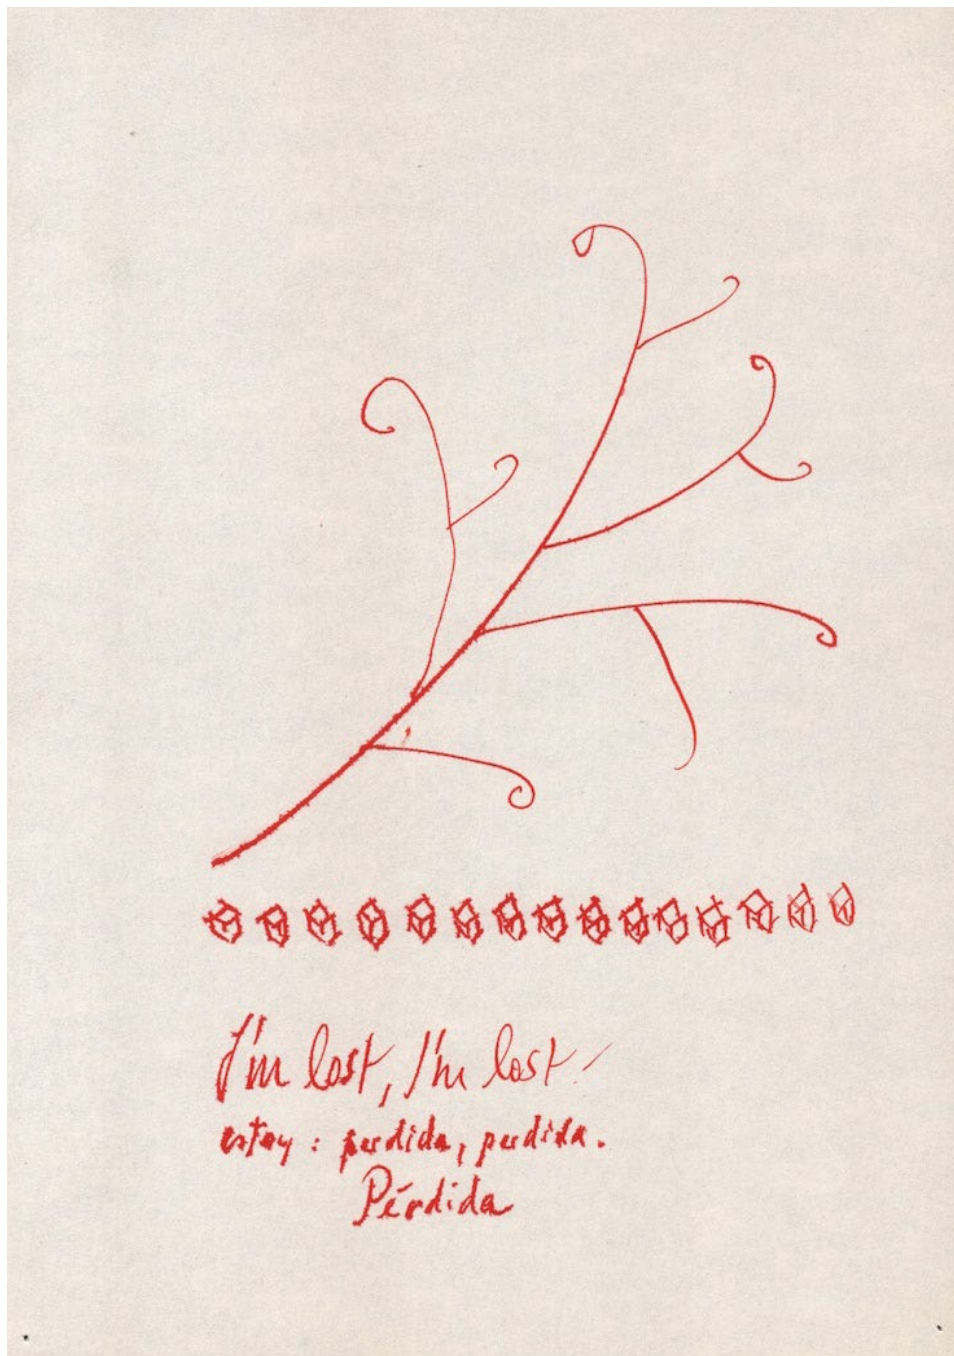 I'm lost, I'm lost.
estoy: perdida, perdida.
Pérdida